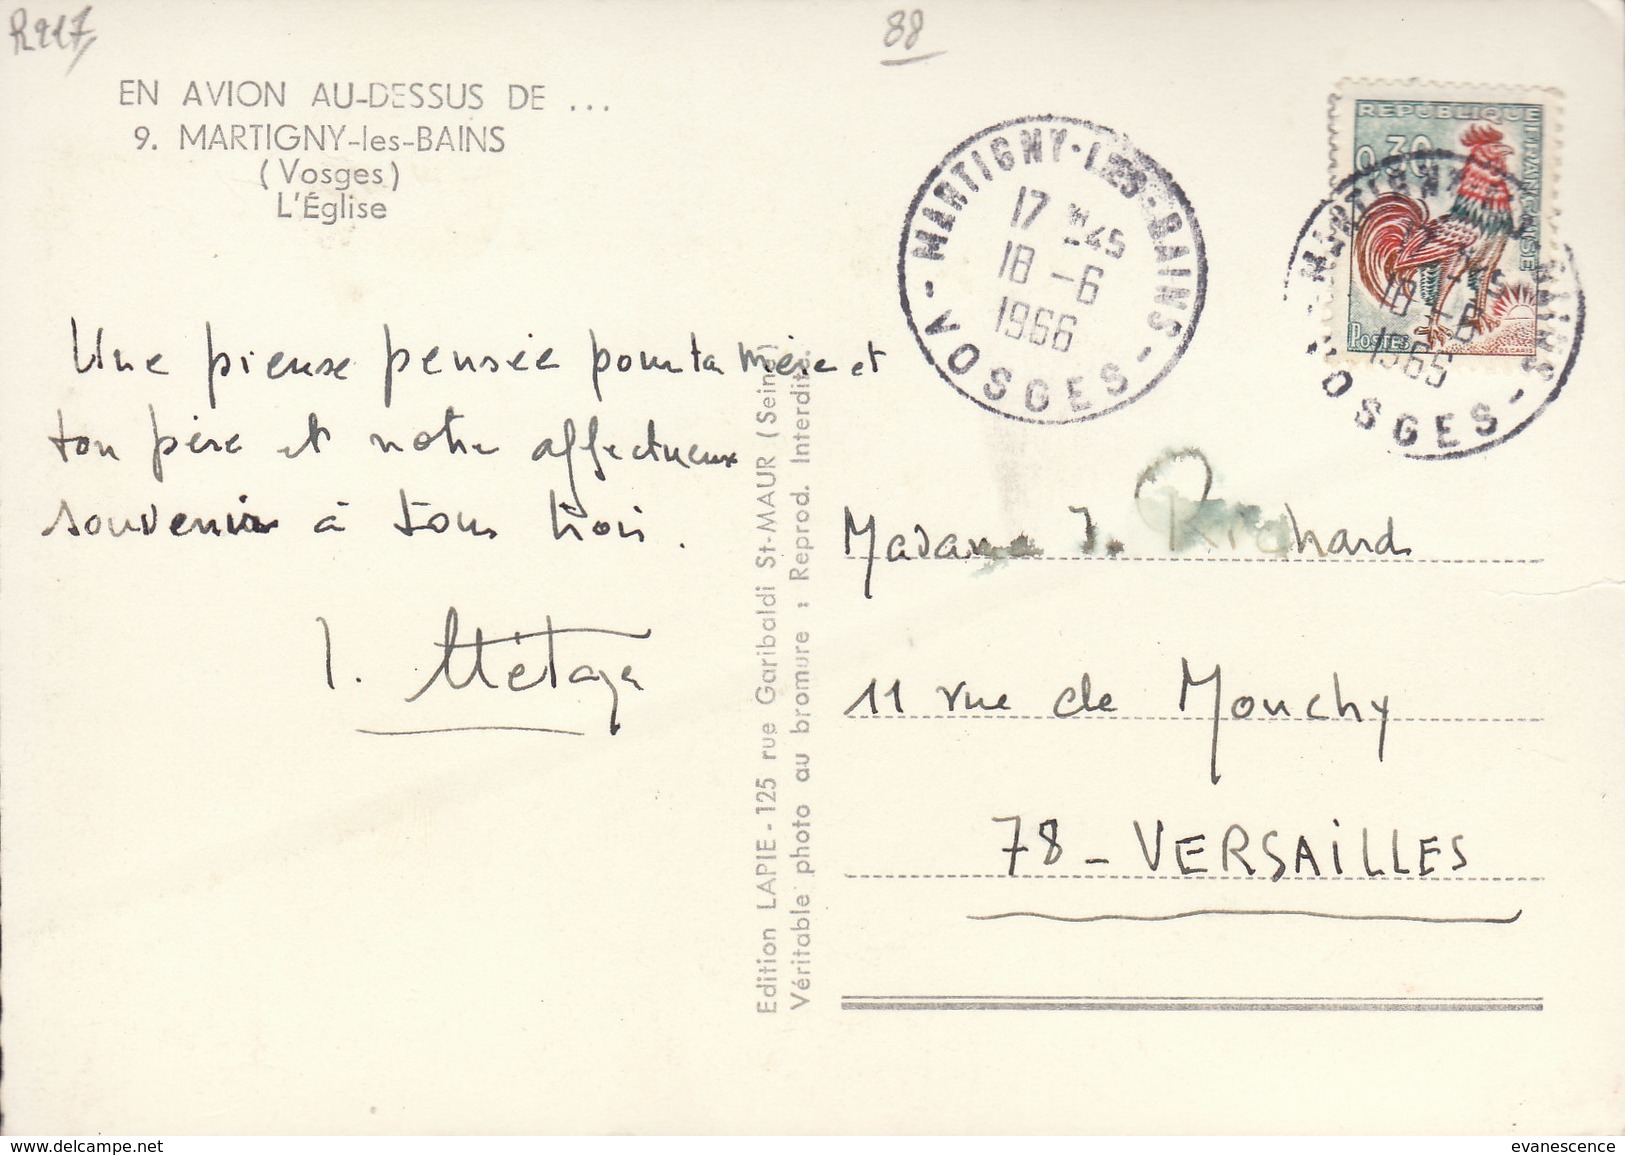 R217
88
EN AVION AU-DESSUS DE ...
9. MARTIGNY-les-BAINS
(Vosges)
L'Église
Une pieuse pensée pour ta mère et
ton père et notre affectueux
souvenir à tous trois.
J. Métaye
Edition LAPIE - 125 rue Garibaldi St-MAUR (Seine)
Véritable photo au bromure : Reprod. Interdite.
MARTIGNY-LES-BAINS
17 H45
18 -6
1966
- VOSGES -
REPUBLIQUE FRANÇAISE
0,30
POSTES
DECARIS
MARTIGNY-LES-BAINS
17 H45
18 -6
1966
VOSGES -
Madame J. Richard
11 rue de Mouchy
78 - VERSAiLLES
www.delcampe.net
evanescence